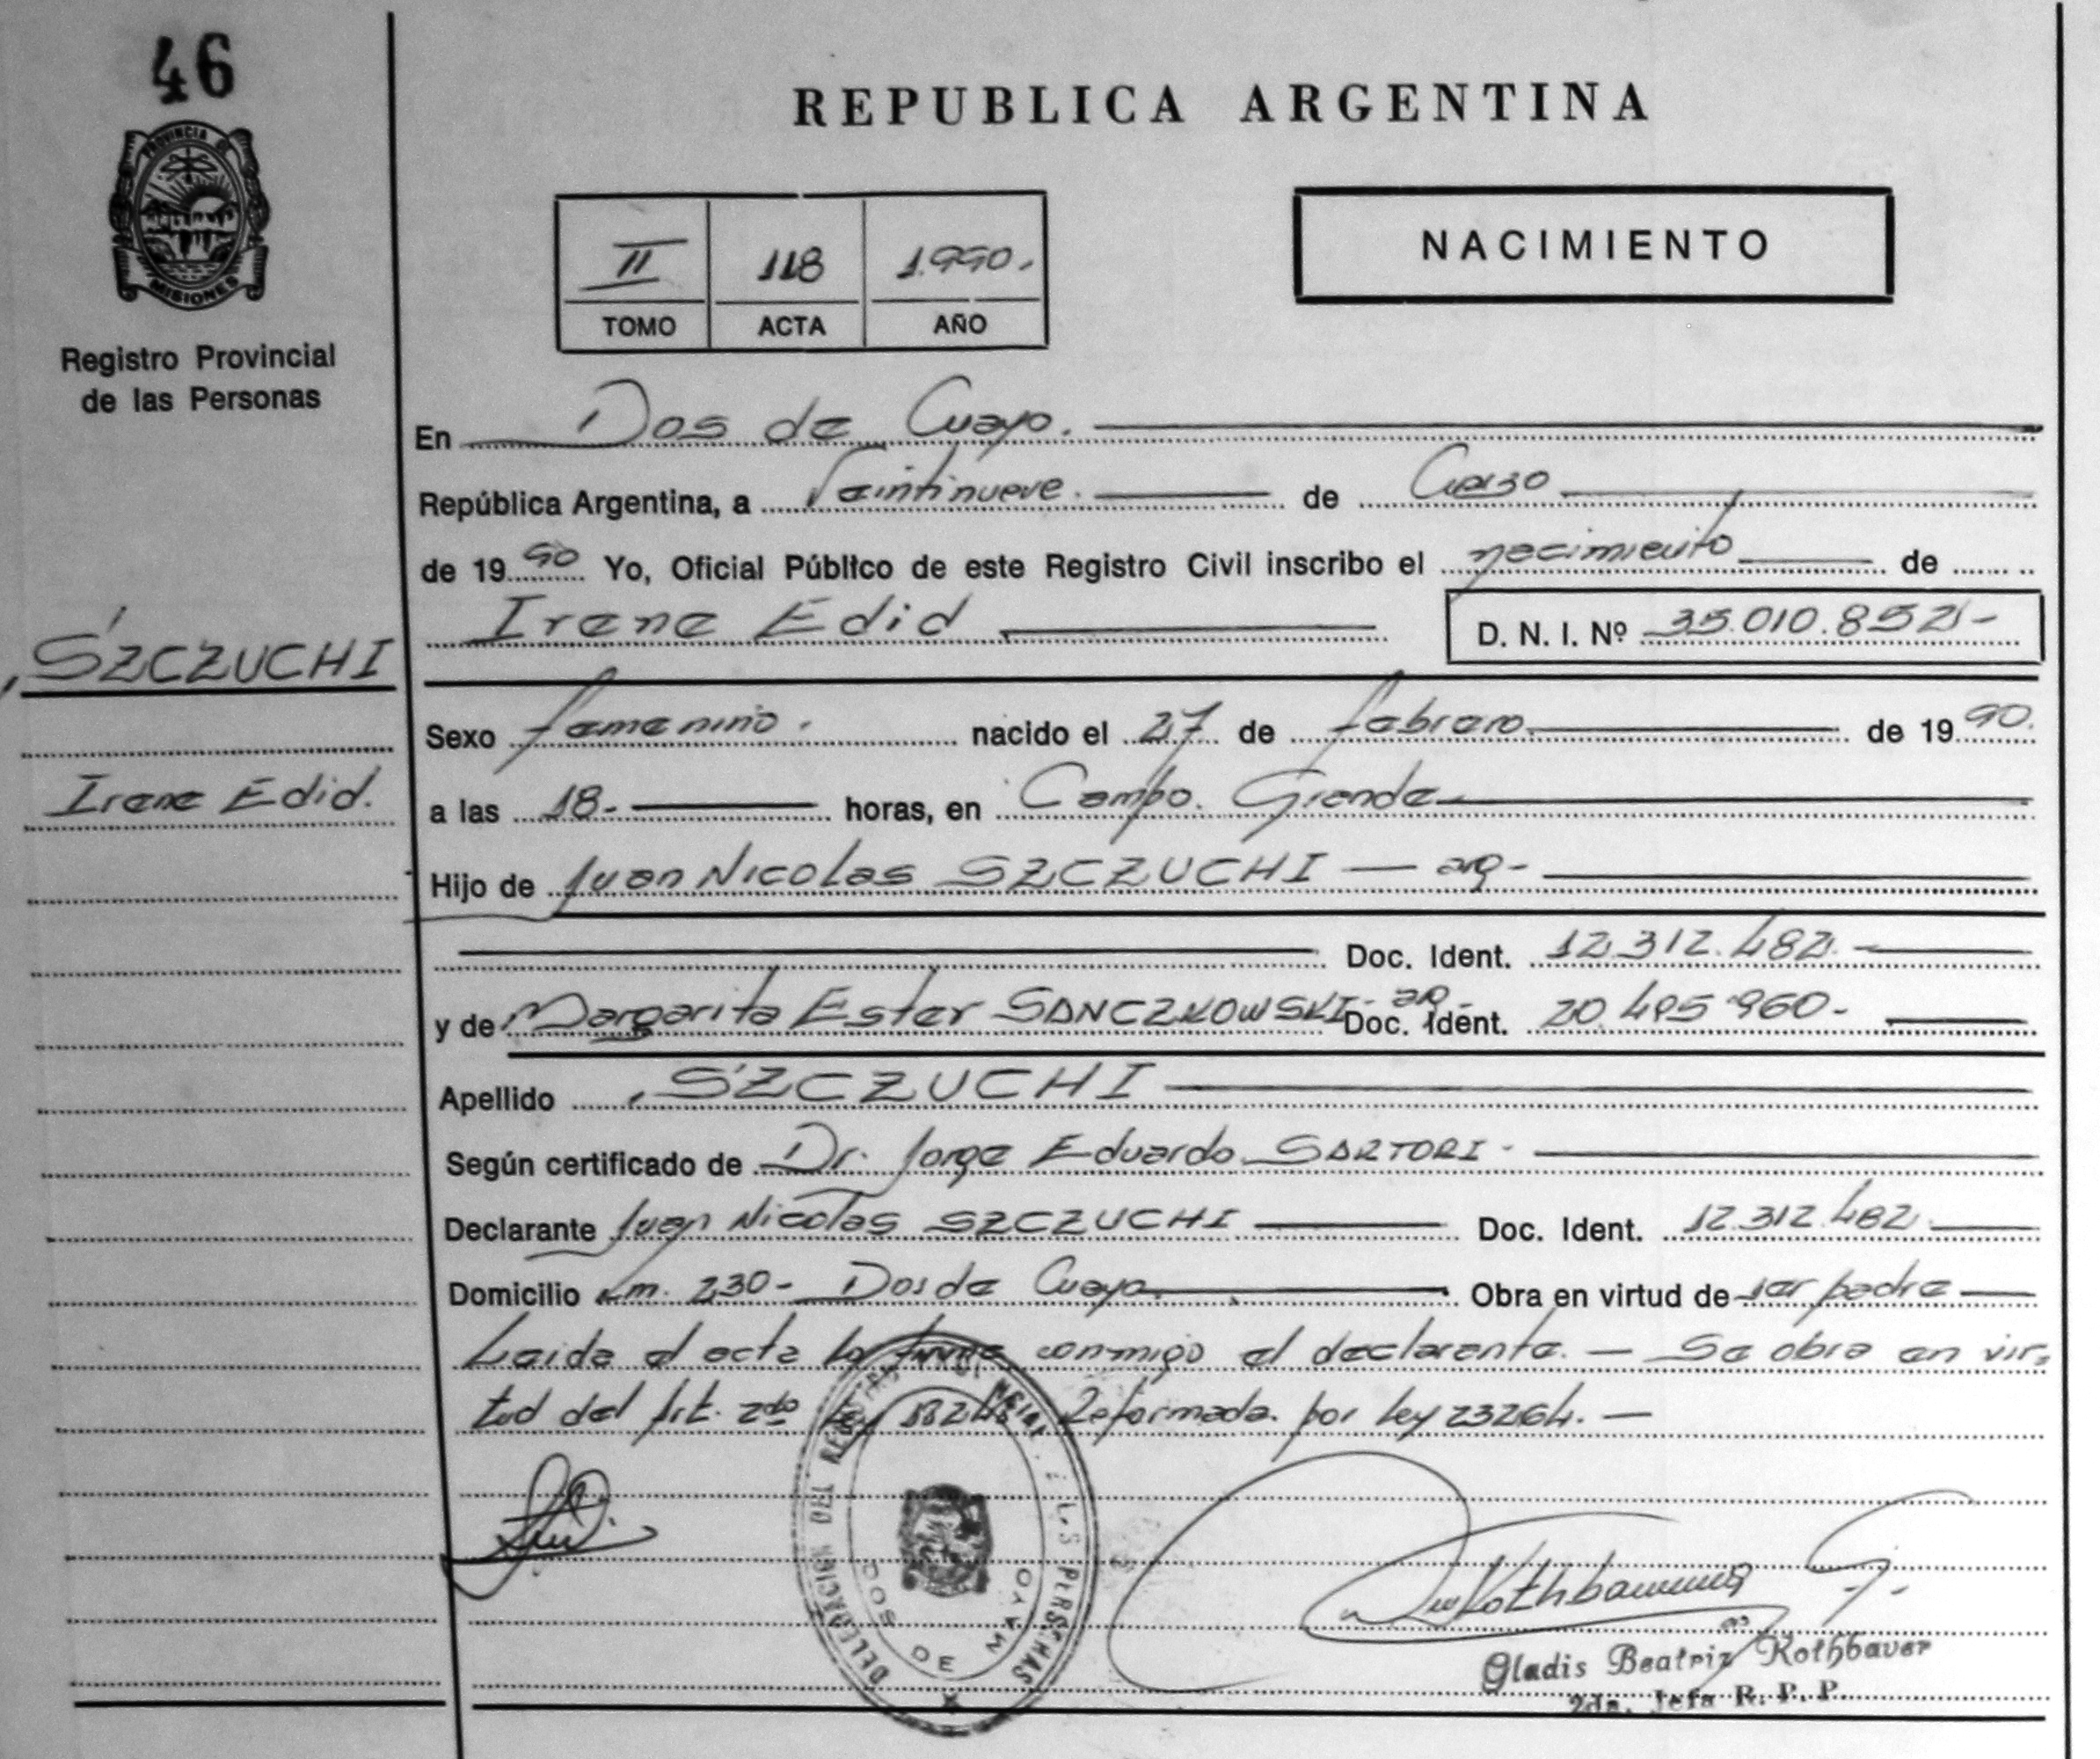 46
REPUBLICA ARGENTINA
PROVINCIA DE
MISIONES
Registro Provincial
de las Personas
II 118 1.990.
TOMO ACTA AÑO
NACIMIENTO
En Dos de Mayo.
República Argentina, a Veintinueve. de Marzo
de 1990 Yo, Oficial Público de este Registro Civil inscribo el nacimiento de
Irene Edid
D. N. I. Nº 35.010.852-
SZCZUCHI
Irene Edid.
Sexo femenino. nacido el 27 de febrero. de 1990.
a las 18.- horas, en Campo Grande
Hijo de Juan Nicolas SZCZUCHI — arg-
Doc. Ident. 12.312.482.-
y de Margarita Ester SANCZKOWSKI- arg- Doc. Ident. 20.495.960-
Apellido SZCZUCHI
Según certificado de Dr. Jorge Eduardo SARTORI-
Declarante Juan Nicolas SZCZUCHI Doc. Ident. 12.312.482
Domicilio km. 230- Dos de Mayo. Obra en virtud de ser padre
Leida el acta la firma conmigo el declarante. — Se obra en vir-
tud del Art. 2do Ley 18248 Reformada por ley 23264. —
DELEGACION DEL REGISTRO PERSONAS
DOS DE MAYO
Rothbauer G.
Gladis Beatriz Rothbauer
2da. Jefa R. P. P.